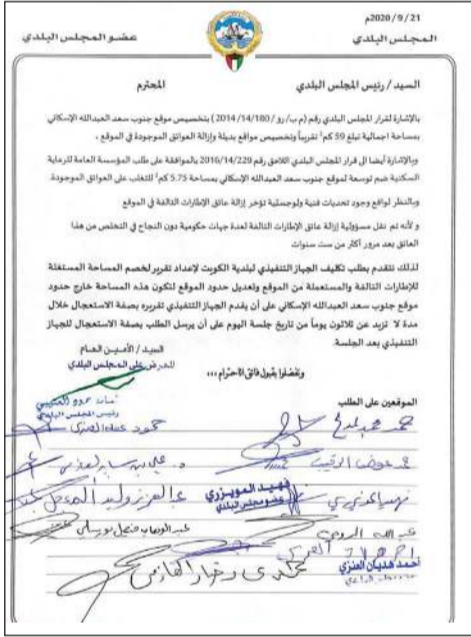 2020/9/21م
المجلس البلدي
عضو المجلس البلدي
السيد / رئيس المجلس البلدي المحترم
بالإشارة لقرار المجلس البلدي رقم (م ب/ رو / 2014/14/180) بتخصيص موقع جنوب سعد العبدالله الإسكاني
بمساحة اجمالية تبلغ 59 كم² تقريباً وتخصيص مواقع بديلة وإزالة العوائق الموجودة في الموقع ،
وبالإشارة أيضا الى قرار المجلس البلدي اللاحق رقم 2016/14/229 بالموافقة على طلب المؤسسة العامة للرعاية
السكنية ضم توسعة لموقع جنوب سعد العبدالله الإسكاني بمساحة 5.75 كم² للتغلب على العوائق الموجودة.
وبالنظر لواقع وجود تحديات فنية ولوجستية تؤخر إزالة عائق الإطارات التالفة في الموقع
و لأنه تم نقل مسؤولية إزالة عائق الإطارات التالفة لعدة جهات حكومية دون النجاح في التخلص من هذا
العائق بعد مرور أكثر من ست سنوات
لذلك نتقدم بطلب تكليف الجهاز التنفيذي لبلدية الكويت لإعداد تقرير لخصم المساحة المستغلة
للإطارات التالفة والمستعملة من الموقع وتعديل حدود الموقع لتكون هذه المساحة خارج حدود
موقع جنوب سعد العبدالله الإسكاني على أن يقدم الجهاز التنفيذي تقريره بصفة الاستعجال خلال
مدة لا تزيد عن ثلاثون يوماً من تاريخ جلسة اليوم على أن يرسل الطلب بصفة الاستعجال للجهاز
التنفيذي بعد الجلسة.
السيد / الأمين العام
للعرض على المجلس البلدي
وتفضلوا بقبول فائق الاحترام ،،،
رئيس المجلس البلدي
الموقعين على الطلب
فهيد المويزري
عضو مجلس البلدي
عبدالله الرومي
أحمد هديان العنزي